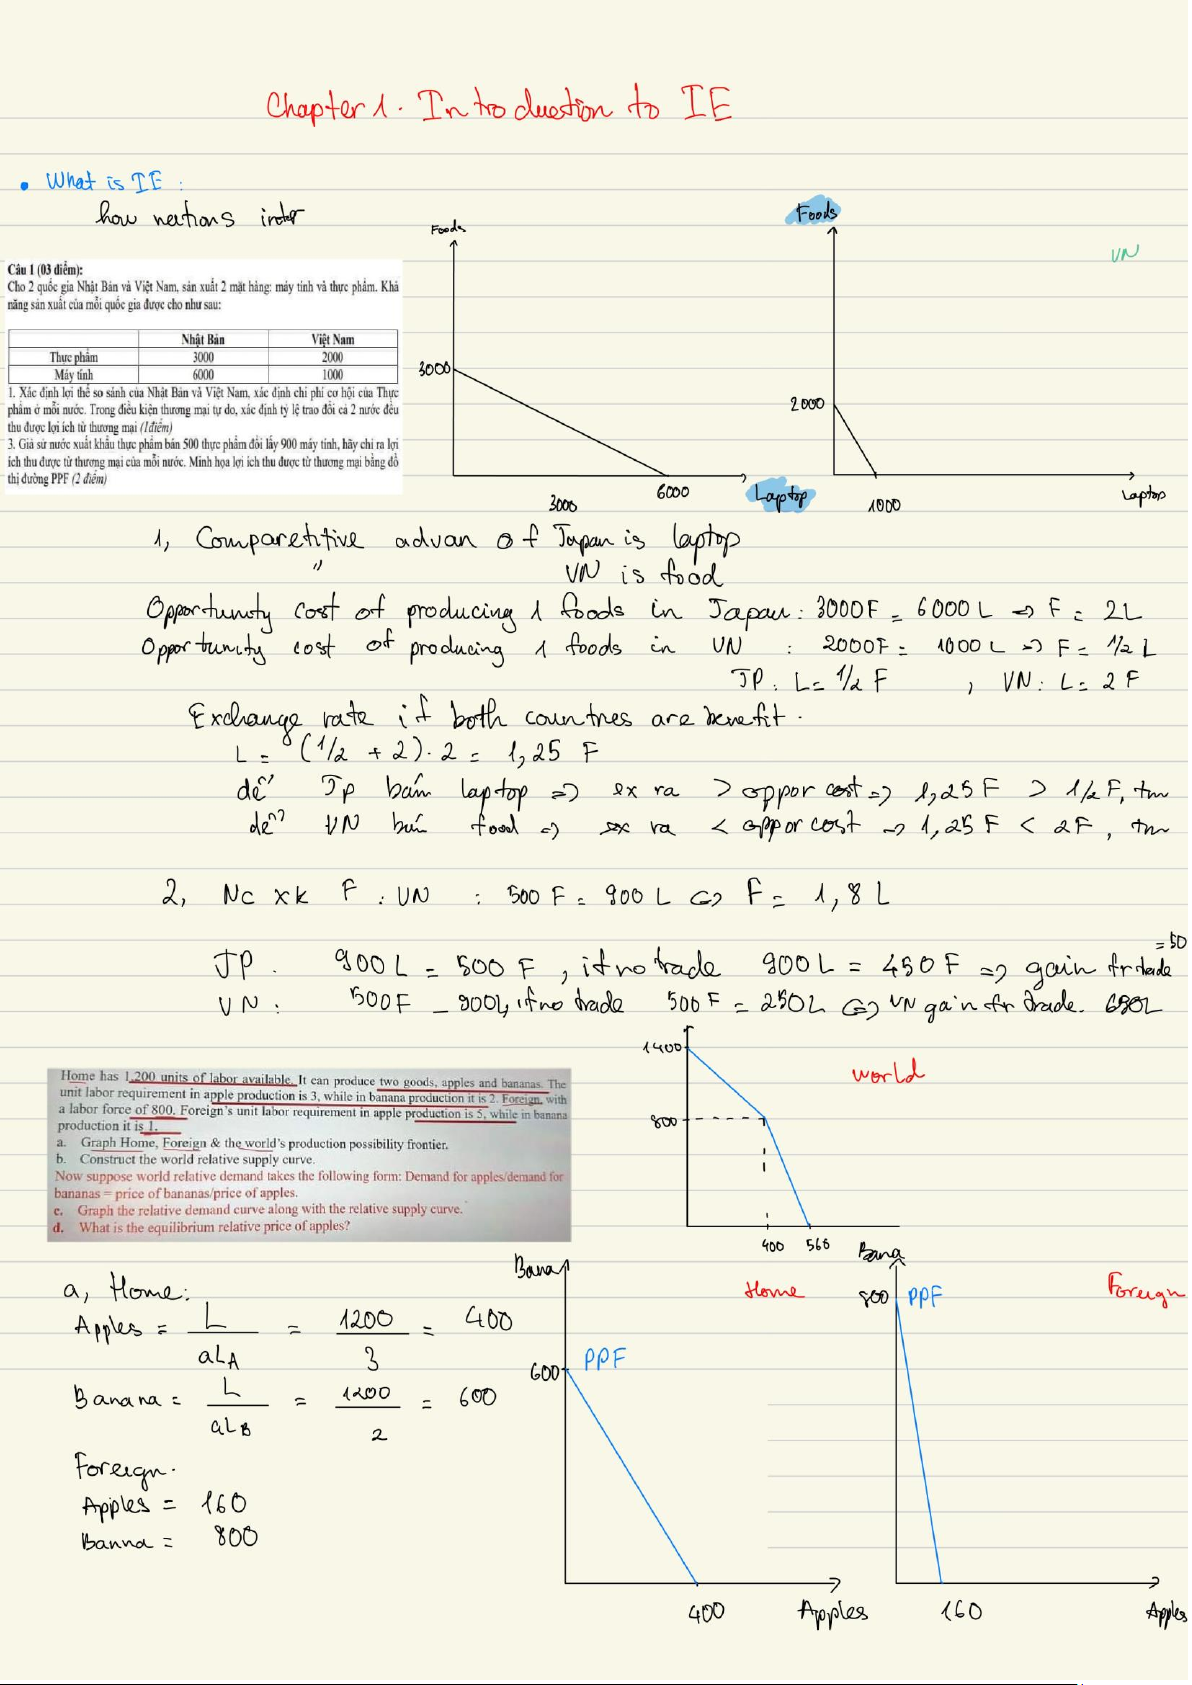 Chapter 1. Introduction to IE
• What is IE :
how nations
Câu 1 (03 điểm):
Cho 2 quốc gia Nhật Bản và Việt Nam, sản xuất 2 mặt hàng: máy tính và thực phẩm. Khả
năng sản xuất của mỗi quốc gia được cho như sau:
Nhật Bản Việt Nam
Thực phẩm 3000 2000
Máy tính 6000 1000
1. Xác định lợi thế so sánh của Nhật Bản và Việt Nam, xác định chi phí cơ hội của Thực
phẩm ở mỗi nước. Trong điều kiện thương mại tự do, xác định tỷ lệ trao đổi cả 2 nước đều
thu được lợi ích từ thương mại (1điểm)
3. Giả sử nước xuất khẩu thực phẩm bán 500 thực phẩm đổi lấy 900 máy tính, hãy chỉ ra lợi
ích thu được từ thương mại của mỗi nước. Minh họa lợi ích thu được từ thương mại bằng đồ
thị đường PPF (2 điểm)
Foods
3000
3000
6000
Laptop
Foods
VN
2000
1000
Laptop
1, Comparetitive advan of Japan is laptop
" VN is food
Opportunity cost of producing 1 foods in Japan : 3000F = 6000 L => F = 2L
Opportunity cost of producing 1 foods in VN : 2000F = 1000 L => F = 1/2 L
JP : L = 1/2 F , VN : L = 2 F
Exchange rate if both countries are benefit.
L = (1/2 + 2) . 2 = 1,25 F
để Jp bán laptop => ex ra > oppor cost => 1,25 F > 1/2 F, tm
để VN bán food => ex ra < oppor cost => 1,25 F < 2F , tm
2, Nc xk F : VN : 500 F = 900 L <=> F = 1,8 L
JP . 900 L = 500 F , if no trade 900 L = 450 F => gain fr trade = 50
VN : 500F = 900L, if no trade 500 F = 250L <=> VN gain fr trade. 650L
Home has 1,200 units of labor available. It can produce two goods, apples and bananas. The
unit labor requirement in apple production is 3, while in banana production it is 2. Foreign, with
a labor force of 800. Foreign's unit labor requirement in apple production is 5, while in banana
production it is 1.
a. Graph Home, Foreign & the world's production possibility frontier.
b. Construct the world relative supply curve.
Now suppose world relative demand takes the following form: Demand for apples/demand for
bananas = price of bananas/price of apples.
c. Graph the relative demand curve along with the relative supply curve.
d. What is the equilibrium relative price of apples?
1400
800
400 560
World
a, Home:
Apples = L / aLA = 1200 / 3 = 400
Banana = L / aLB = 1200 / 2 = 600
Foreign.
Apples = 160
Banna = 800
Bana
Home
600
PPF
400
Apples
Bana
Foreign
800
PPF
160
Apples